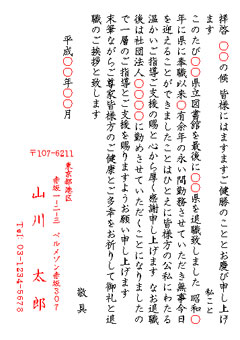 拝啓　〇〇の候　皆様にはますますご健勝のこととお慶び申し上げ
ます
私こと
このたび〇〇県立図書館を最後に〇〇県を退職致しました　昭和〇
年に県に奉職以来〇有余年の永い間勤務させていただき無事今日
を迎えることができましたことはひとえに皆様方の公私にわたる
温かいご指導ご支援の賜と心から厚く感謝申し上げます　なお退職
後は社団法人〇〇〇〇に勤めさせていただくことになりましたの
で一層のご指導とご支援を賜りますようお願い申し上げます
末筆ながらご尊家皆様方のご健康とご多幸をお祈りして御礼と退
職のご挨拶と致します
敬具
平成〇〇年〇〇月
〒107-6211
東京都港区
赤坂一丁目一番 ベルメゾン赤坂307
山川　太郎
Tel 03-1234-5678